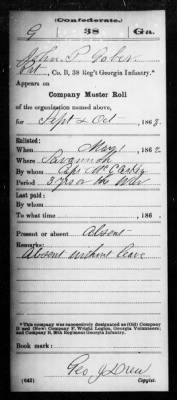 (Confederate.)
G 38 Ga.
John P. Gober
Pvt., Co. B, 38 Reg't Georgia Infantry.*
Appears on
Company Muster Roll
of the organization named above,
for Sept & Oct, 1863.
Enlisted:
When May 1, 1862
Where Savannah
By whom Capt McClesky
Period 3 yrs or the War
Last paid:
By whom
To what time , 186 .
Present or absent Absent
Remarks:
Absent without leave
*This company was successively designated as (Old) Company
D and (New) Company F, Wright Legion, Georgia Volunteers,
and Company B, 38th Regiment Georgia Infantry.
Book mark:
Geo J Drew
(642) Copyist.